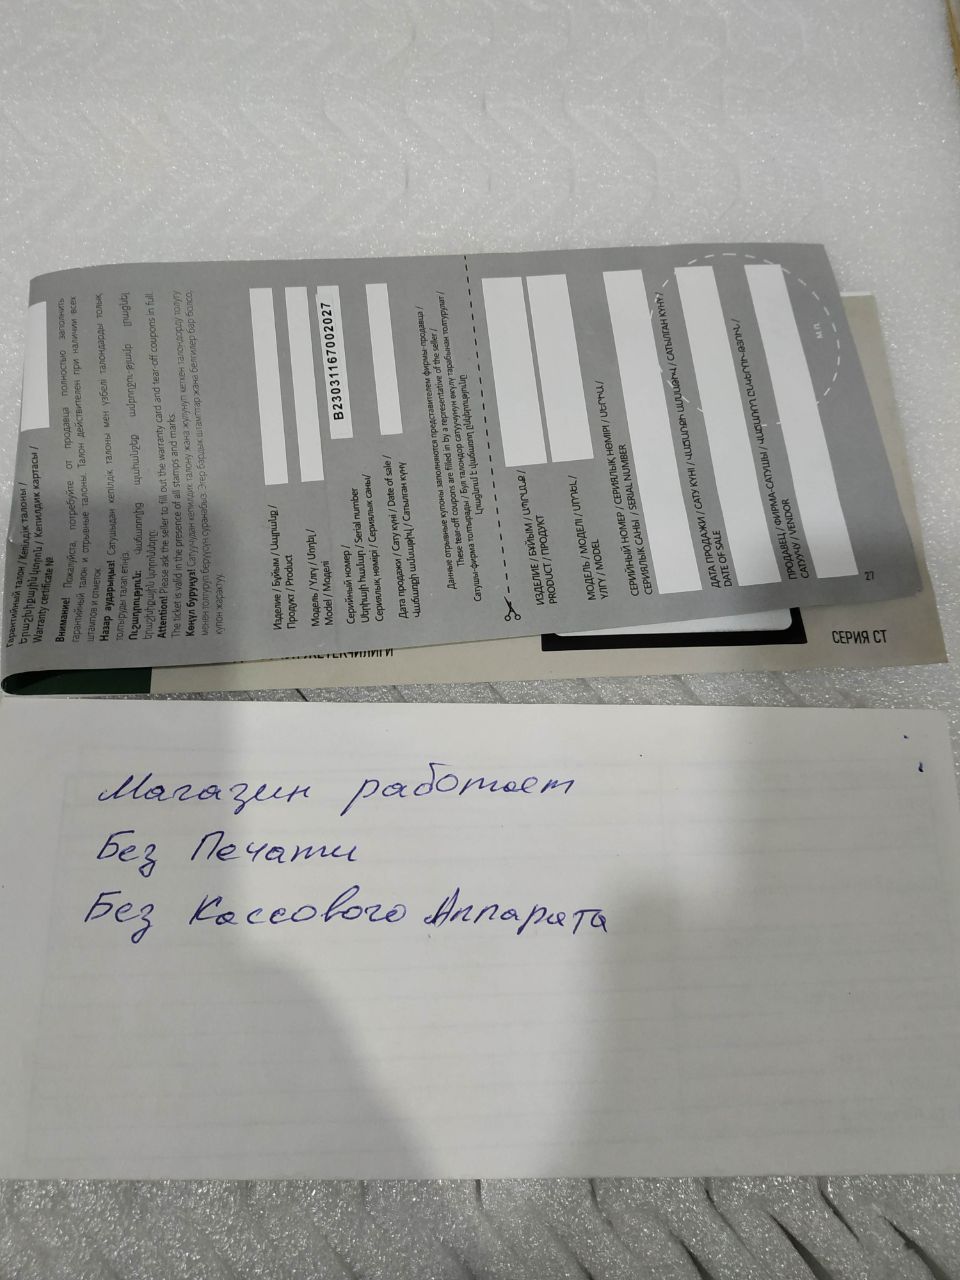 Гарантийный талон / Кепілдік талоны /
Երաշխիքային կտրոն / Кепилдик картасы /
Warranty certificate №
Внимание! Пожалуйста, потребуйте от продавца полностью заполнить
гарантийный талон и отрывные талоны. Талон действителен при наличии всех
штампов и отметок.
Назар аударыңыз! Сатушыдан кепілдік талоны мен үзбелі талондарды толық
толтыруды талап етіңіз.
Ուշադրություն:
Երաշխիքային կտրոնները
Attention! Please ask the seller to fill out the warranty card and tear-off coupons in full.
The ticket is valid in the presence of all stamps and marks.
Көңүл буруңуз! Сатуучудан кепилдик талону жана жулунуп кеткен талондорду толугу
менен толтуруп берүүсүн сураныңыз. Эгер бардык штамптар жана белгилер бар болсо,
купон жарактуу.
Изделие / Бұйым / Ապրանք /
Продукт / Product
Модель / Үлгү / Մոդել /
Model / Моделі
B23031167002027
Серийный номер /
Սերիային համար / Serial number
Сериялық нөмірі / Сериялык саны
Дата продажи / Сату күні / Date of sale /
Վաճառքի ամսաթիվ / Сатылган күнү
Данные отрывные купоны заполняются представителем фирмы-продавца /
These tear-off coupons are filled in by a representative of the seller /
Сатушы-фирма толтырады / Бул талондор сатуучунун өкүлү тарабынан толтурулат /
Լրացնում է վաճառող ընկերությունը
ИЗДЕЛИЕ / БҰЙЫМ / ԱՊՐԱՆՔ /
PRODUCT / ПРОДУКТ
МОДЕЛЬ / МОДЕЛІ / ՄՈԴԵԼ /
ҮЛГҮ / MODEL
СЕРИЙНЫЙ НОМЕР / СЕРИЯЛЫҚ НӨМІРІ / ՍԵՐԻԱ /
СЕРИЯЛЫК САНЫ / SERIAL NUMBER
ДАТА ПРОДАЖИ / САТУ КҮНІ / ՎԱՃԱՌՔԻ ԱՄՍԱԹԻՎ / САТЫЛГАН КҮНҮ /
DATE OF SALE
ПРОДАВЕЦ / ФИРМА-САТУШЫ / ՎԱՃԱՌՈՂ ԸՆԿԵՐՈՒԹՅՈՒՆ /
САТУУЧУ / VENDOR
М.П.
27
СЕРИЯ СТ
Магазин работает
Без Печати
Без Кассового Аппарата